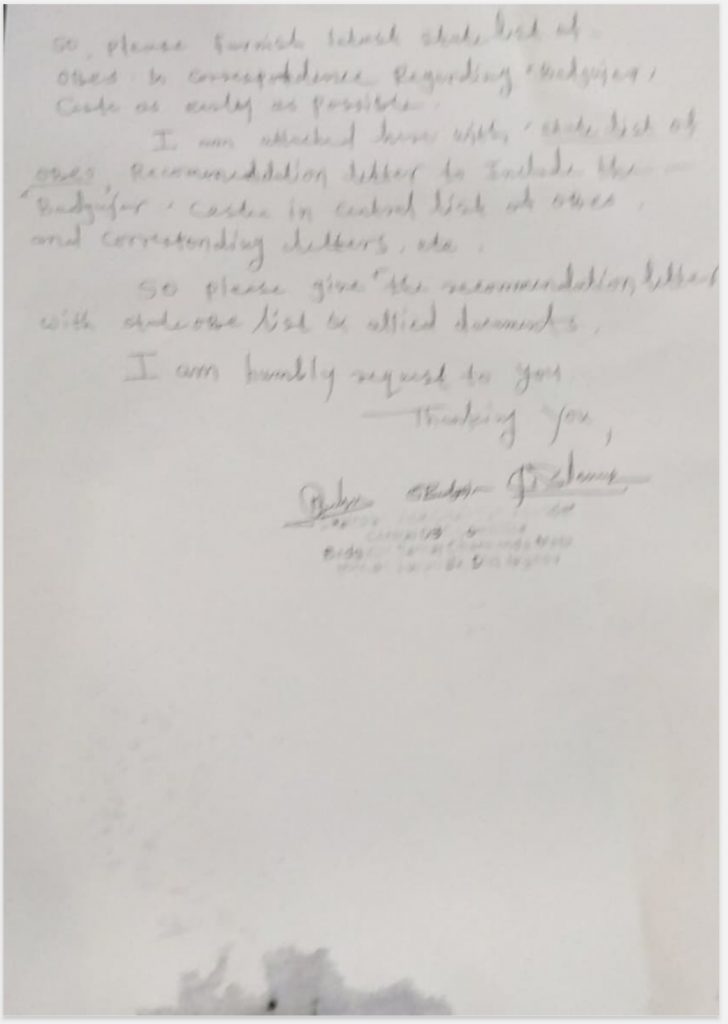 so, please furnish latest state list of
OBCs & correspondence Regarding "Badgujar,
Caste as early as possible.
I am attached here with, state list of
OBCs, Recommeddation letter to Include the
"Badgujar, caste in central list of OBCs,
and correstonding letters, etc.
So please give "the recommendation letter
with state OBC list & allied documents.
I am humbly request to you
Thanking you,